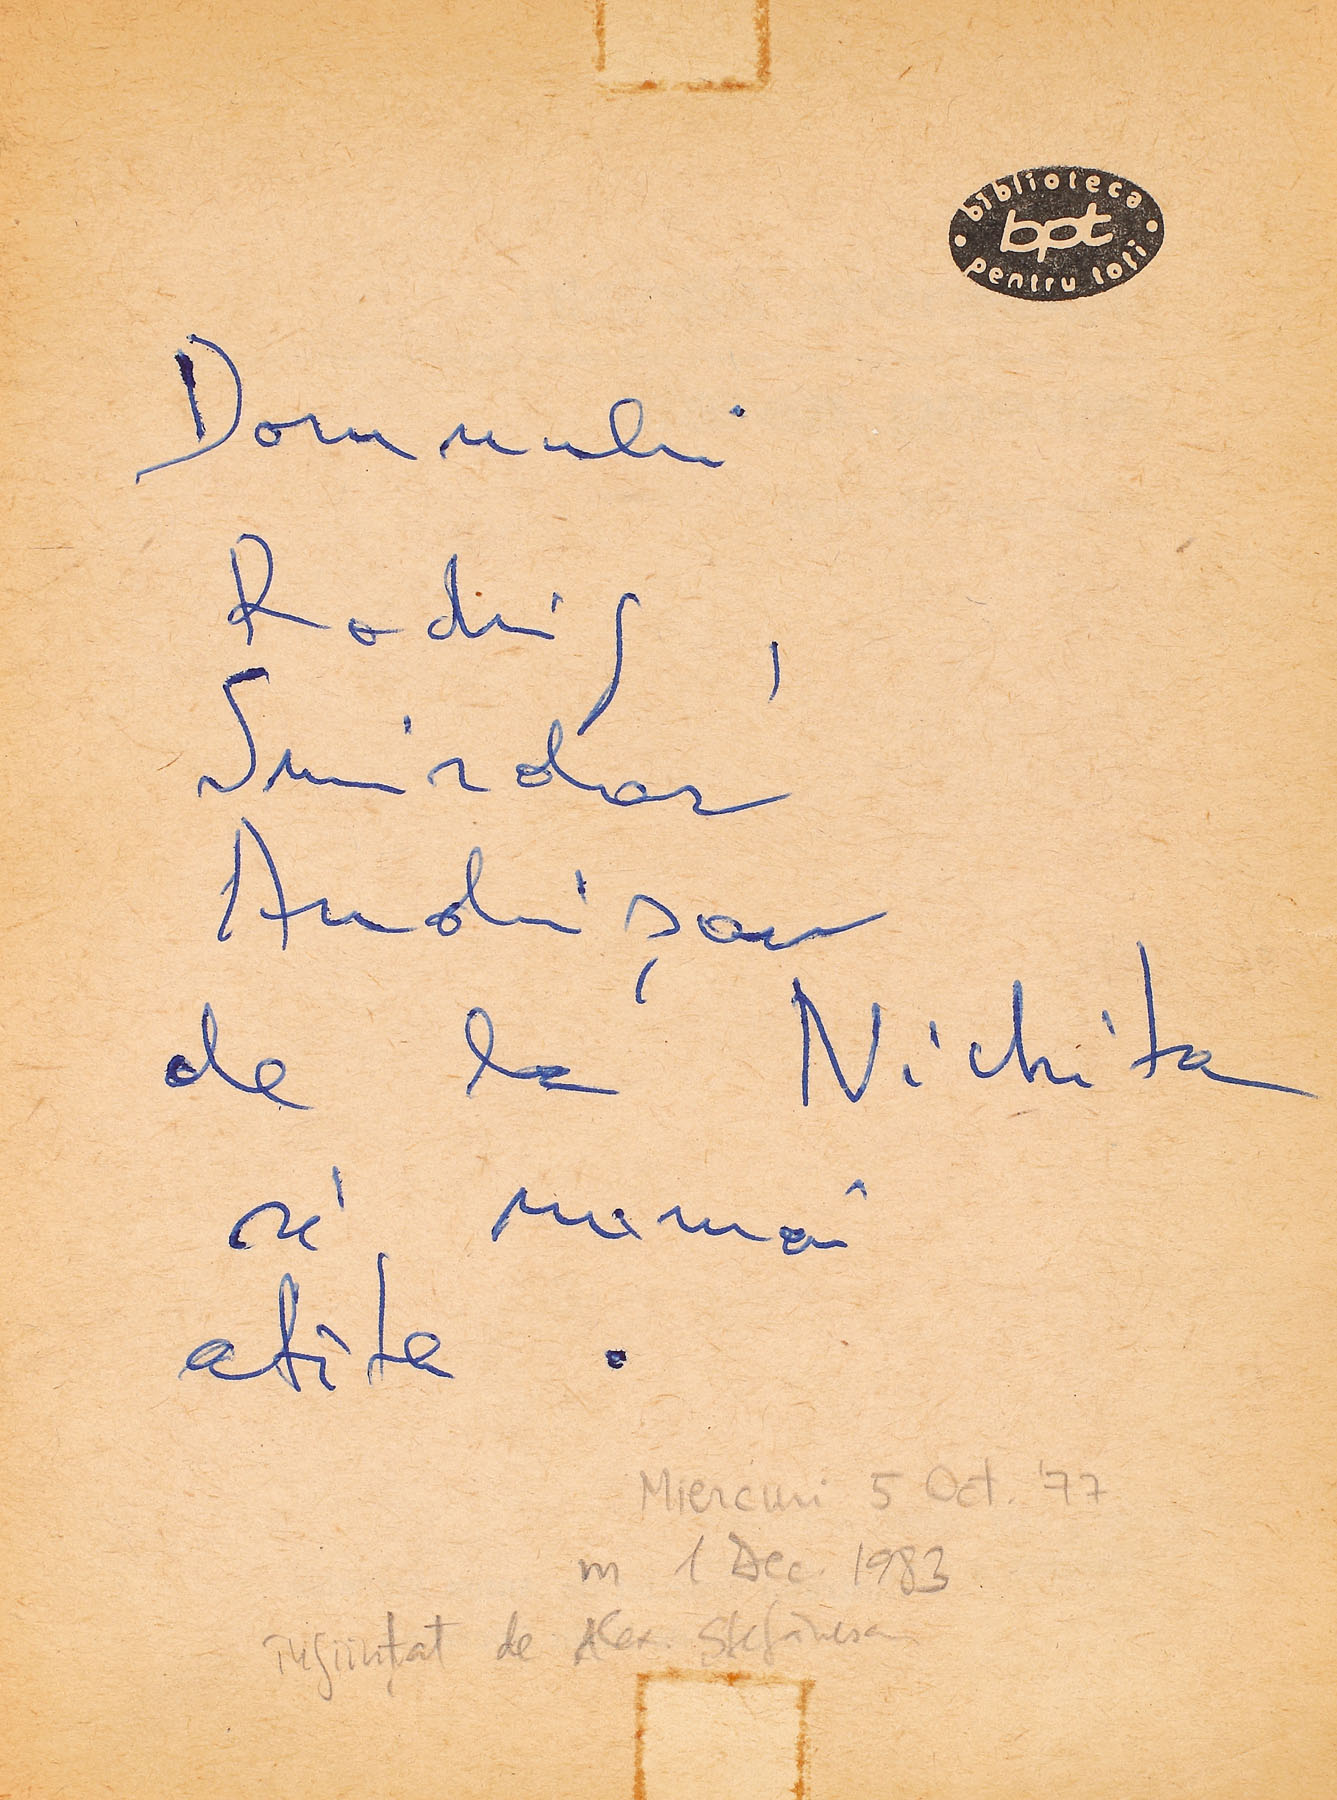 biblioteca
bpt
pentru toți
Domnului
Rodrig,
Smirdar
Andrișan
de la Nichita
și numai
atîta.
Miercuri 5 Oct. '77
m 1 Dec. 1983
înființat de Alex. Ștefănescu